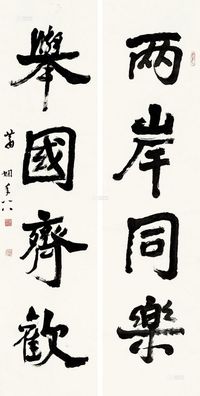 两岸同樂
舉國齊歡